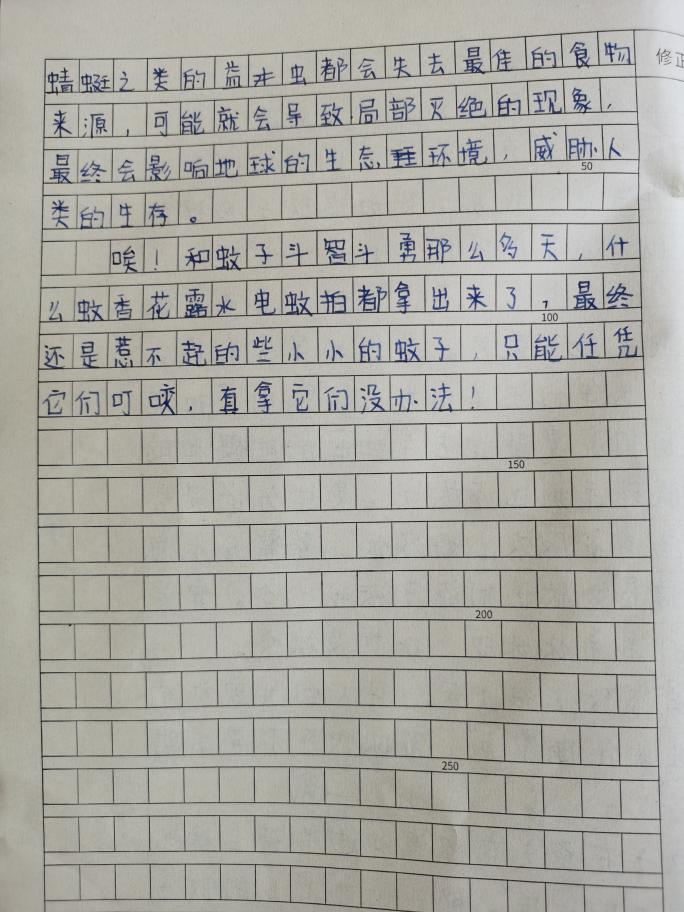 蜻蜓之类的益虫都会失去最佳的食物
来源，可能就会导致局部灭绝的现象，
最终会影响地球的生态环境，威胁人
50
类的生存。
唉！和蚊子斗智斗勇那么多天，什
么蚊香花露水电蚊拍都拿出来了，最终
100
还是惹不起的些小小的蚊子，只能任凭
它们叮咬，真拿它们没办法！
150
200
250
修正